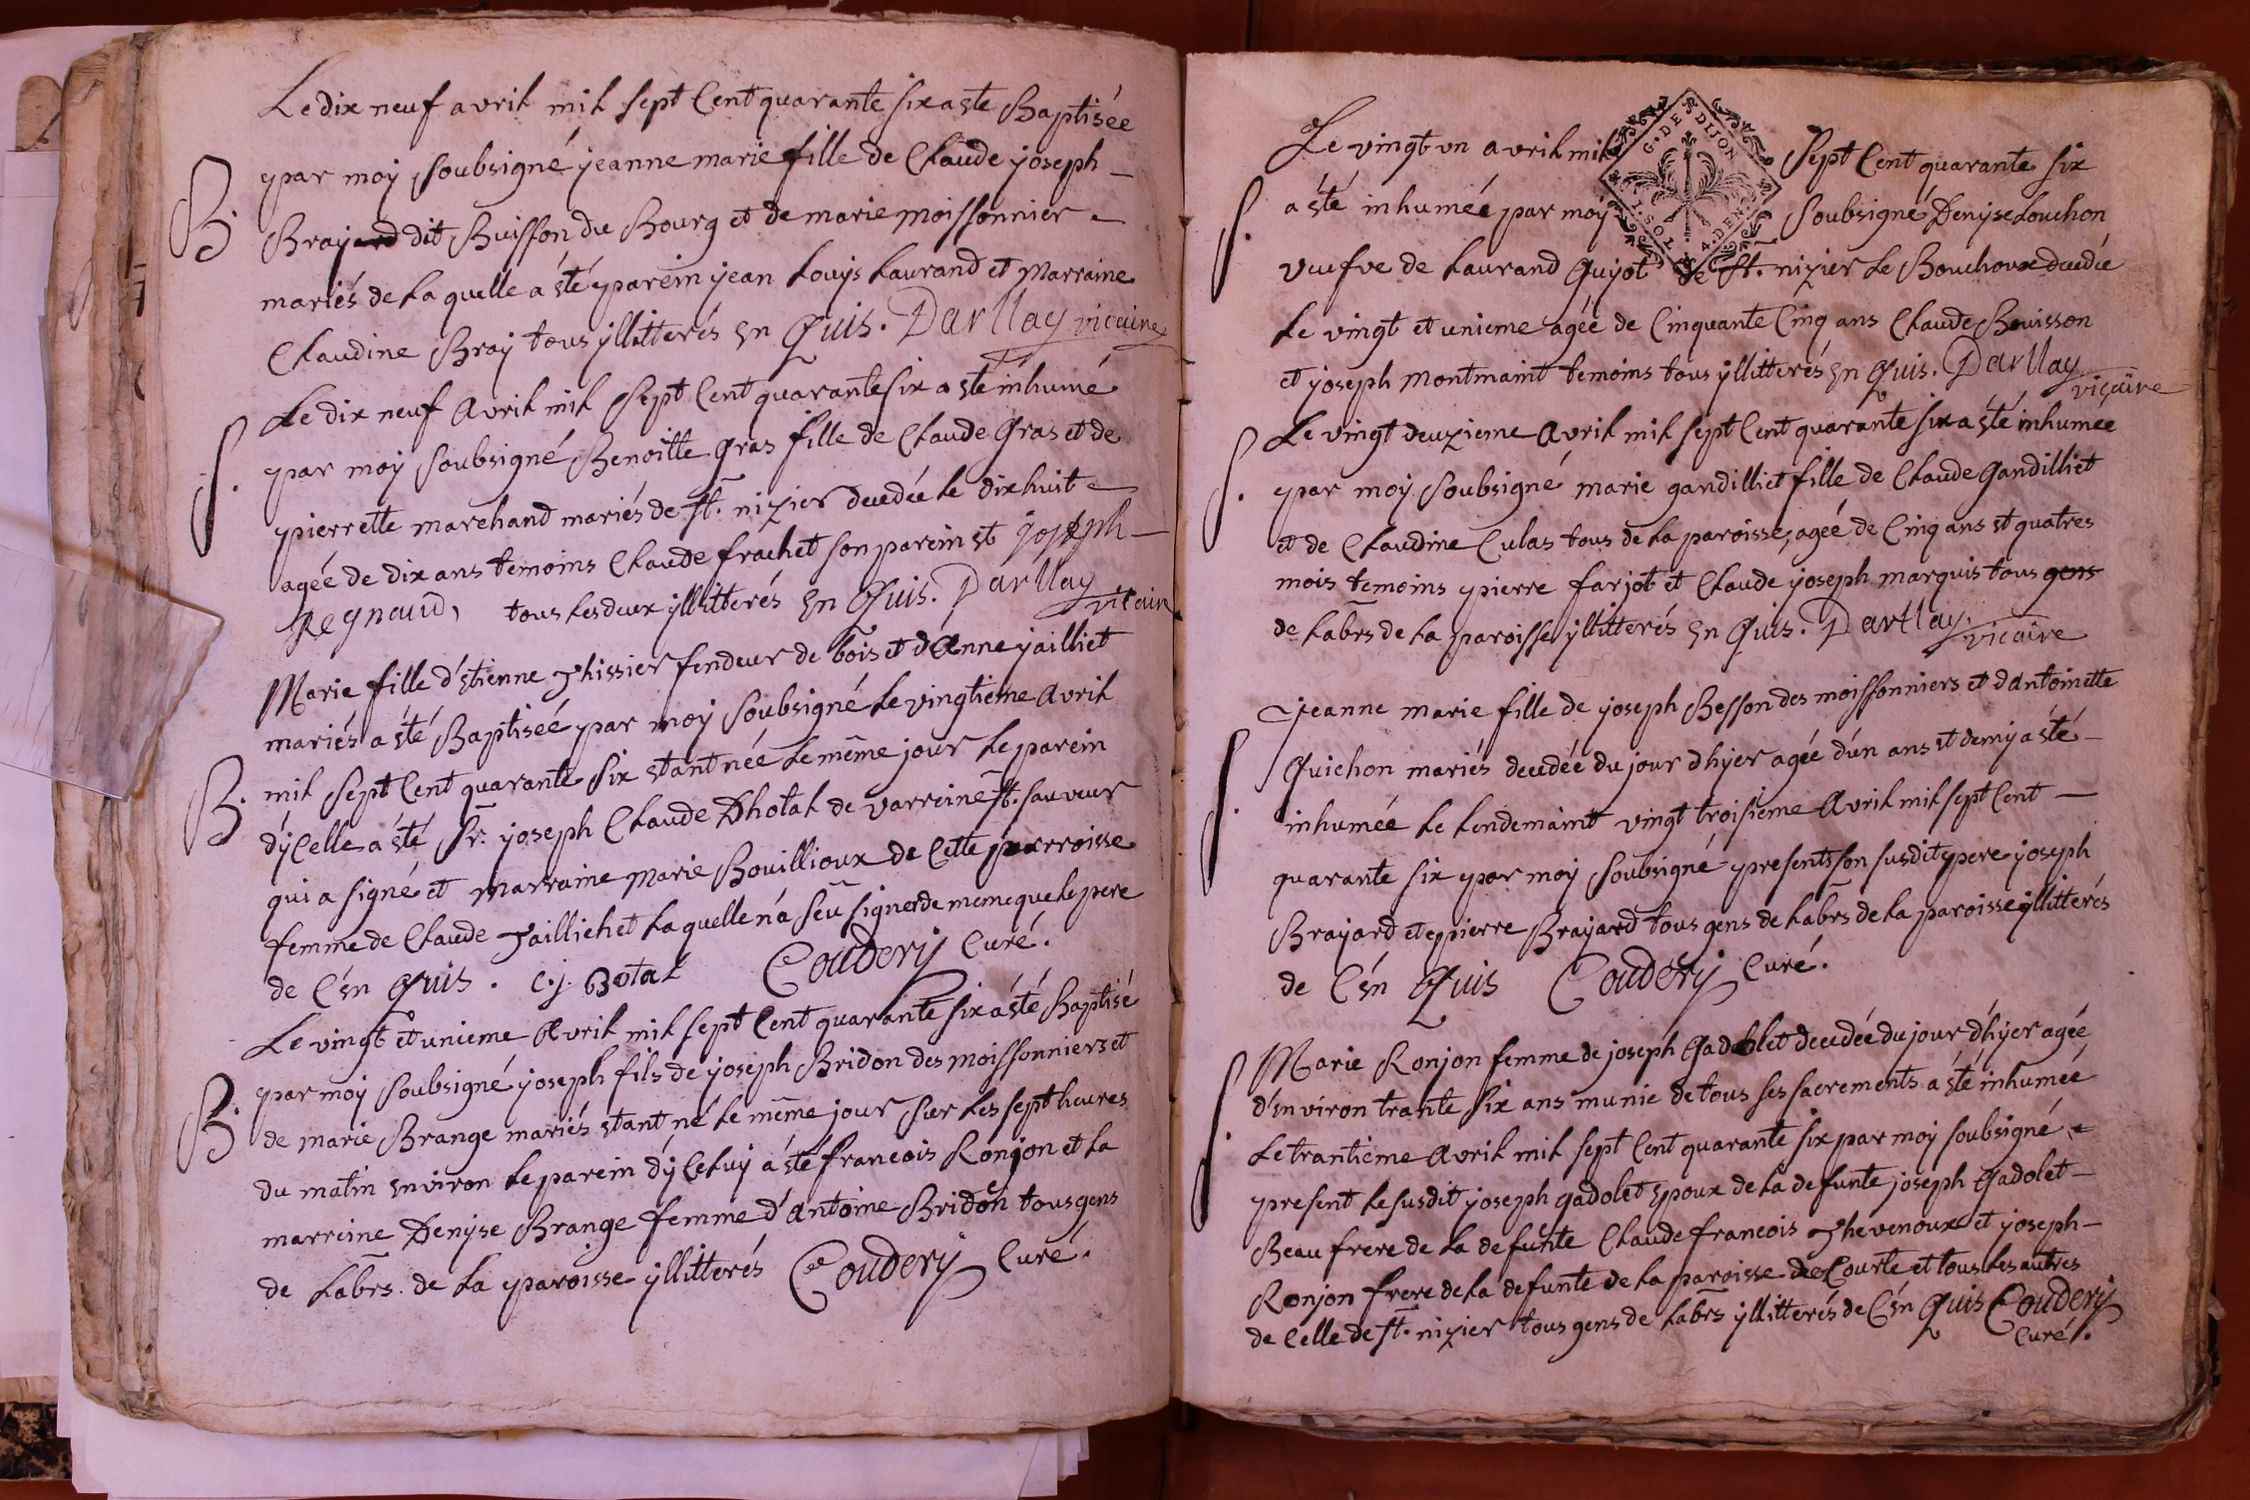 Le dix neuf avril mil sept Cent quarante six a ste Baptisée
B. par moy soubsigné jeanne marie fille de Claude joseph
Brayard dit Buisson du Bourg et de marie moissonnier
mariés de la quelle a sté parein jean Louys Laurand et Marraine
Claudine Bray tous yllitterés En Quis. Darllay vicaire
Le dix neuf Avril mil sept Cent quarante six a ste inhumé
S. par moy soubsigné Benoitte gras fille de Claude Gras et de
pierrette marchand mariés de st. nizier decedée le dixhuit
agée de dix ans temoins Claude frachet son parein et joseph
Regnaud, tous les deux yllitterés En Quis. Darllay vicaire
Marie fille d'Etienne Thissier fendeur de bois et d'Anne jailliet
mariés a sté Baptiseé par moy soubsigné le vingtieme Avril
B. mil sept Cent quarante six etant née le même jour le parein
d'yCelle a sté Sr. joseph Claude Dhotal de varreine st. sauveur
qui a signé et marraine Marie Bouillioux de Cette parroisse
femme de Claude Jailliehet la quelle n'a sçû signer de meme que le pere
de C'En Quis. C.j. Dotal Coudery Curé.
Le vingt et unieme Avril mil sept Cent quarante six a sté Baptisé
B. par moy soubsigné joseph fils de joseph Bridon des moissonniers et
de marie Brange mariés etant né le même jour sur les sept heures
du matin Environ le parein d'yCeluy a sté francois Ronjon et la
marreine Denyse Brange femme d'antoine Bridon tous gens
de Labrs. de la paroisse yllitterés Coudery Curé.
Le vingt un avril mil sept Cent quarante six
G. DE DIJON
1. SOL 4. DEN.
S. a sté inhumée par moy soubsigné Denyse Louchon
veufve de Laurand Guyot de st. nizier le Bouchoux decedée
le vingt et unieme agée de Cinquante Cinq ans Claude Bouisson
et joseph Montmaint temoins tous yllitterés En Quis. Darllay vicaire
Le vingt deuzieme Avril mil sept Cent quarante six a sté inhumée
S. par moy soubsigné marie gandilliet fille de Claude Gandilliet
et de Claudine Culas tous de la paroisse, agée de Cinq ans et quatres
mois temoins pierre farjot et Claude joseph marquis tous gens
de Labrs de la paroisse yllitterés En Quis. Darllay. vicaire
Jeanne marie fille de joseph Besson des moissonniers et d'antoinette
S. Guichon mariés decedée du jour d'hyer agée d'un ans et demy a sté
inhumée le lendemaint vingt troisieme Avril mil sept Cent
quarante six par moy soubsigné presents son susdit pere joseph
Brayard et pierre Brayard tous gens de Labrs de la paroisse yllitterés
de C'En Quis Coudery Curé.
Marie Ronjon femme de joseph Gadolet decedée du jour d'hyer agée
S. d'Environ trante six ans munie de tous ses sacrements a sté inhumée
Le trantieme Avril mil sept Cent quarante six par moy soubsigné
present le susdit joseph gadolet Epoux de la defunte joseph Gadolet
Beau frere de la defunte Claude francois Thevenoux et joseph
Ronjon frere de la defunte de la paroisse de Courte et tous les autres
de Celle de st. nizier tous gens de Labrs yllitterés de C'En Quis Coudery
Curé.